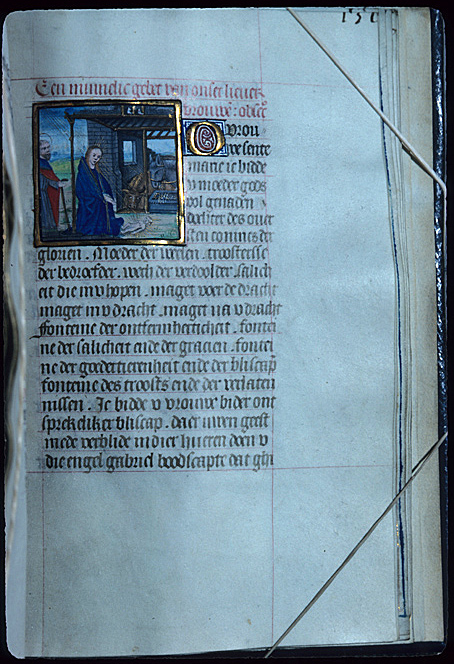 151
Een minnelic gebet van onser liever
vrouwe: obsecro
O vrou
we sente
marie ic bidde
v moeder gods
vol genaden
dochter des over
sten conincs der
glorien. Moeder der weesen. troosterste
der bedroefder. wech der verdoolder. salich
eit die in v hopen. maget voer de dracht
maget in v dracht. maget na v dracht
fonteine der ontfermherticheit. fontei
ne der salicheit ende der gracien. fontei
ne der goedertierenheit ende der bliscap
fonteine des troosts ende der verlaten
nissen. Ic bidde v vrouwe bider ont
sprekeliker bliscap. daer uwen geest
mede verblide in dier hueren doen v
die engel gabriel bootscapte dat god